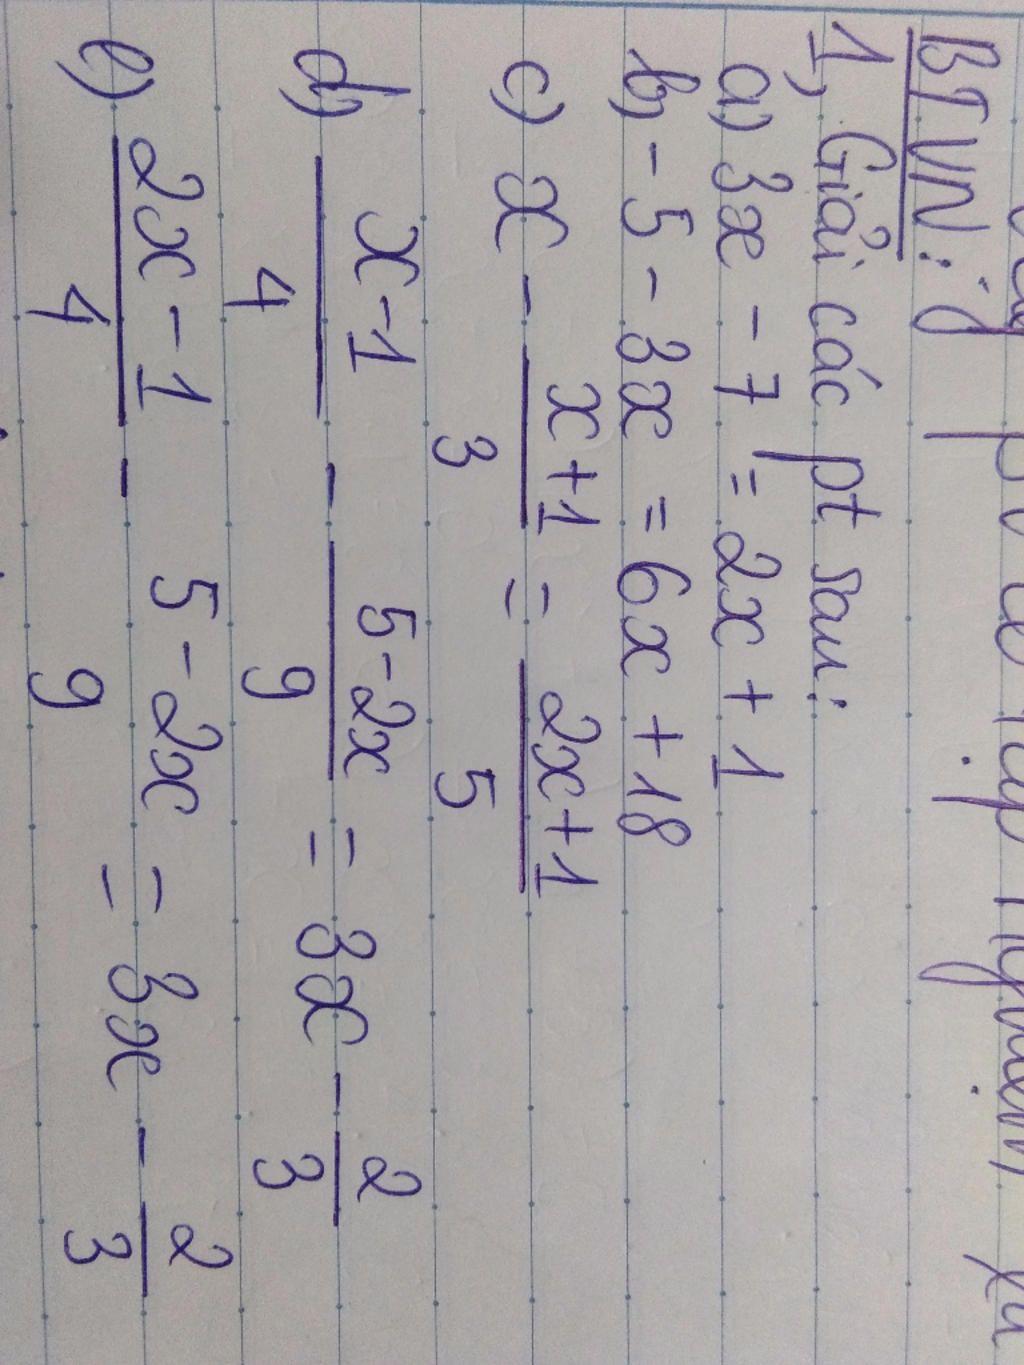 BTVN:
1, Giải các pt sau:
a) 3x - 7 = 2x + 1
b, - 5 - 3x = 6x + 18
c) x - (x+1)/3 = (2x+1)/5
d, (x-1)/4 - (5-2x)/9 = 3x - 2/3
e) (2x-1)/4 - (5-2x)/9 = 3x - 2/3